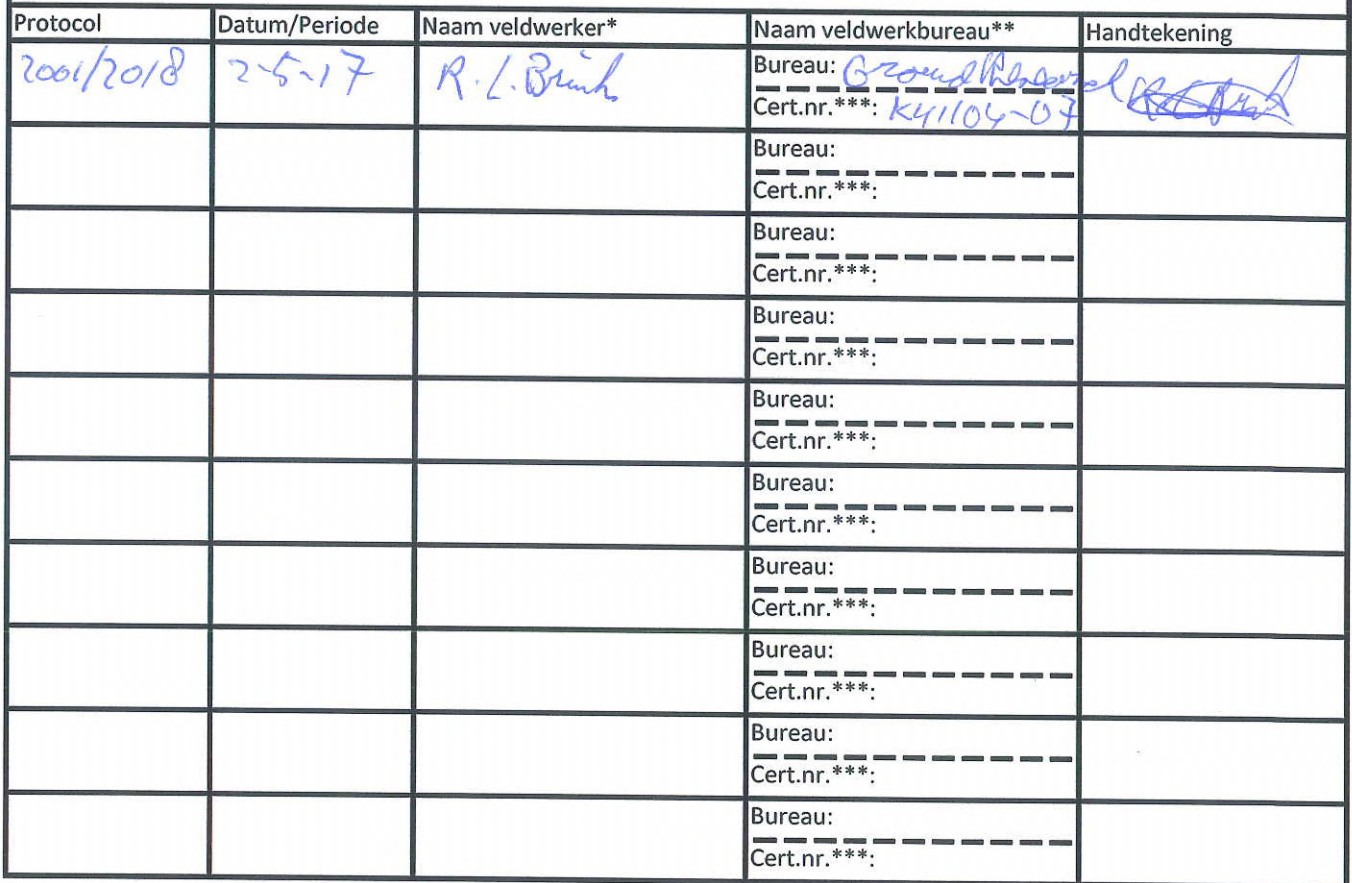 Protocol Datum/Periode Naam veldwerker* Naam veldwerkbureau** Handtekening
2001/2018 2-5-17 R.L. Brink Bureau:
Cert.nr.***: K41104-07
Bureau:
Cert.nr.***:
Bureau:
Cert.nr.***:
Bureau:
Cert.nr.***:
Bureau:
Cert.nr.***:
Bureau:
Cert.nr.***:
Bureau:
Cert.nr.***:
Bureau:
Cert.nr.***:
Bureau:
Cert.nr.***:
Bureau:
Cert.nr.***: